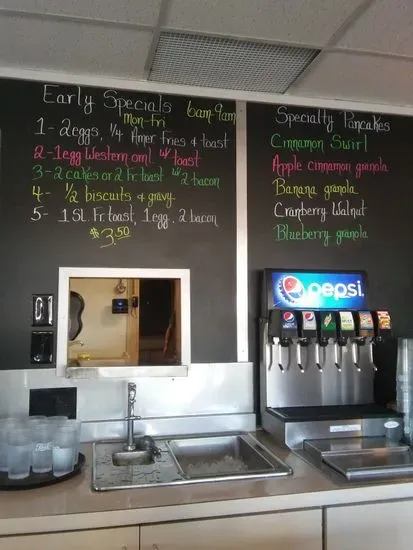 Early Specials 6am-9am
mon-fri
1- 2 eggs, 1/4 Amer Fries & toast
2- 1 egg Western oml. w/ toast
3- 2 cakes or 2 Fr. toast w/ 2 bacon
4- 1/2 biscuits & gravy
5- 1 SL Fr. toast, 1 egg, 2 bacon
$3.50
Specialty Pancakes
Cinnamon Swirl
Apple cinnamon granola
Banana granola
Cranberry Walnut
Blueberry granola
pepsi